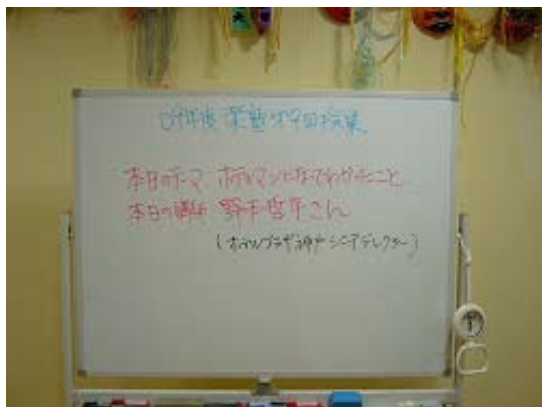 04年度 楽塾オ9回授業
本日のテーマ ホテルマンになってわかったこと
本日の講師 野本哲平さん
(ホテルプラザ神戸 シニアディレクター)